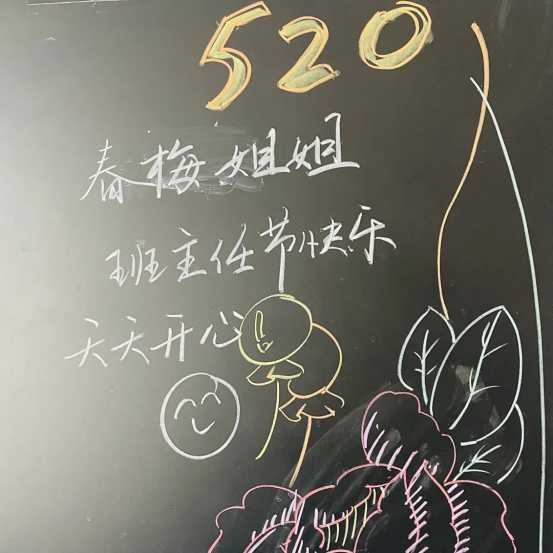 520
春梅姐姐
班主任节快乐
天天开心